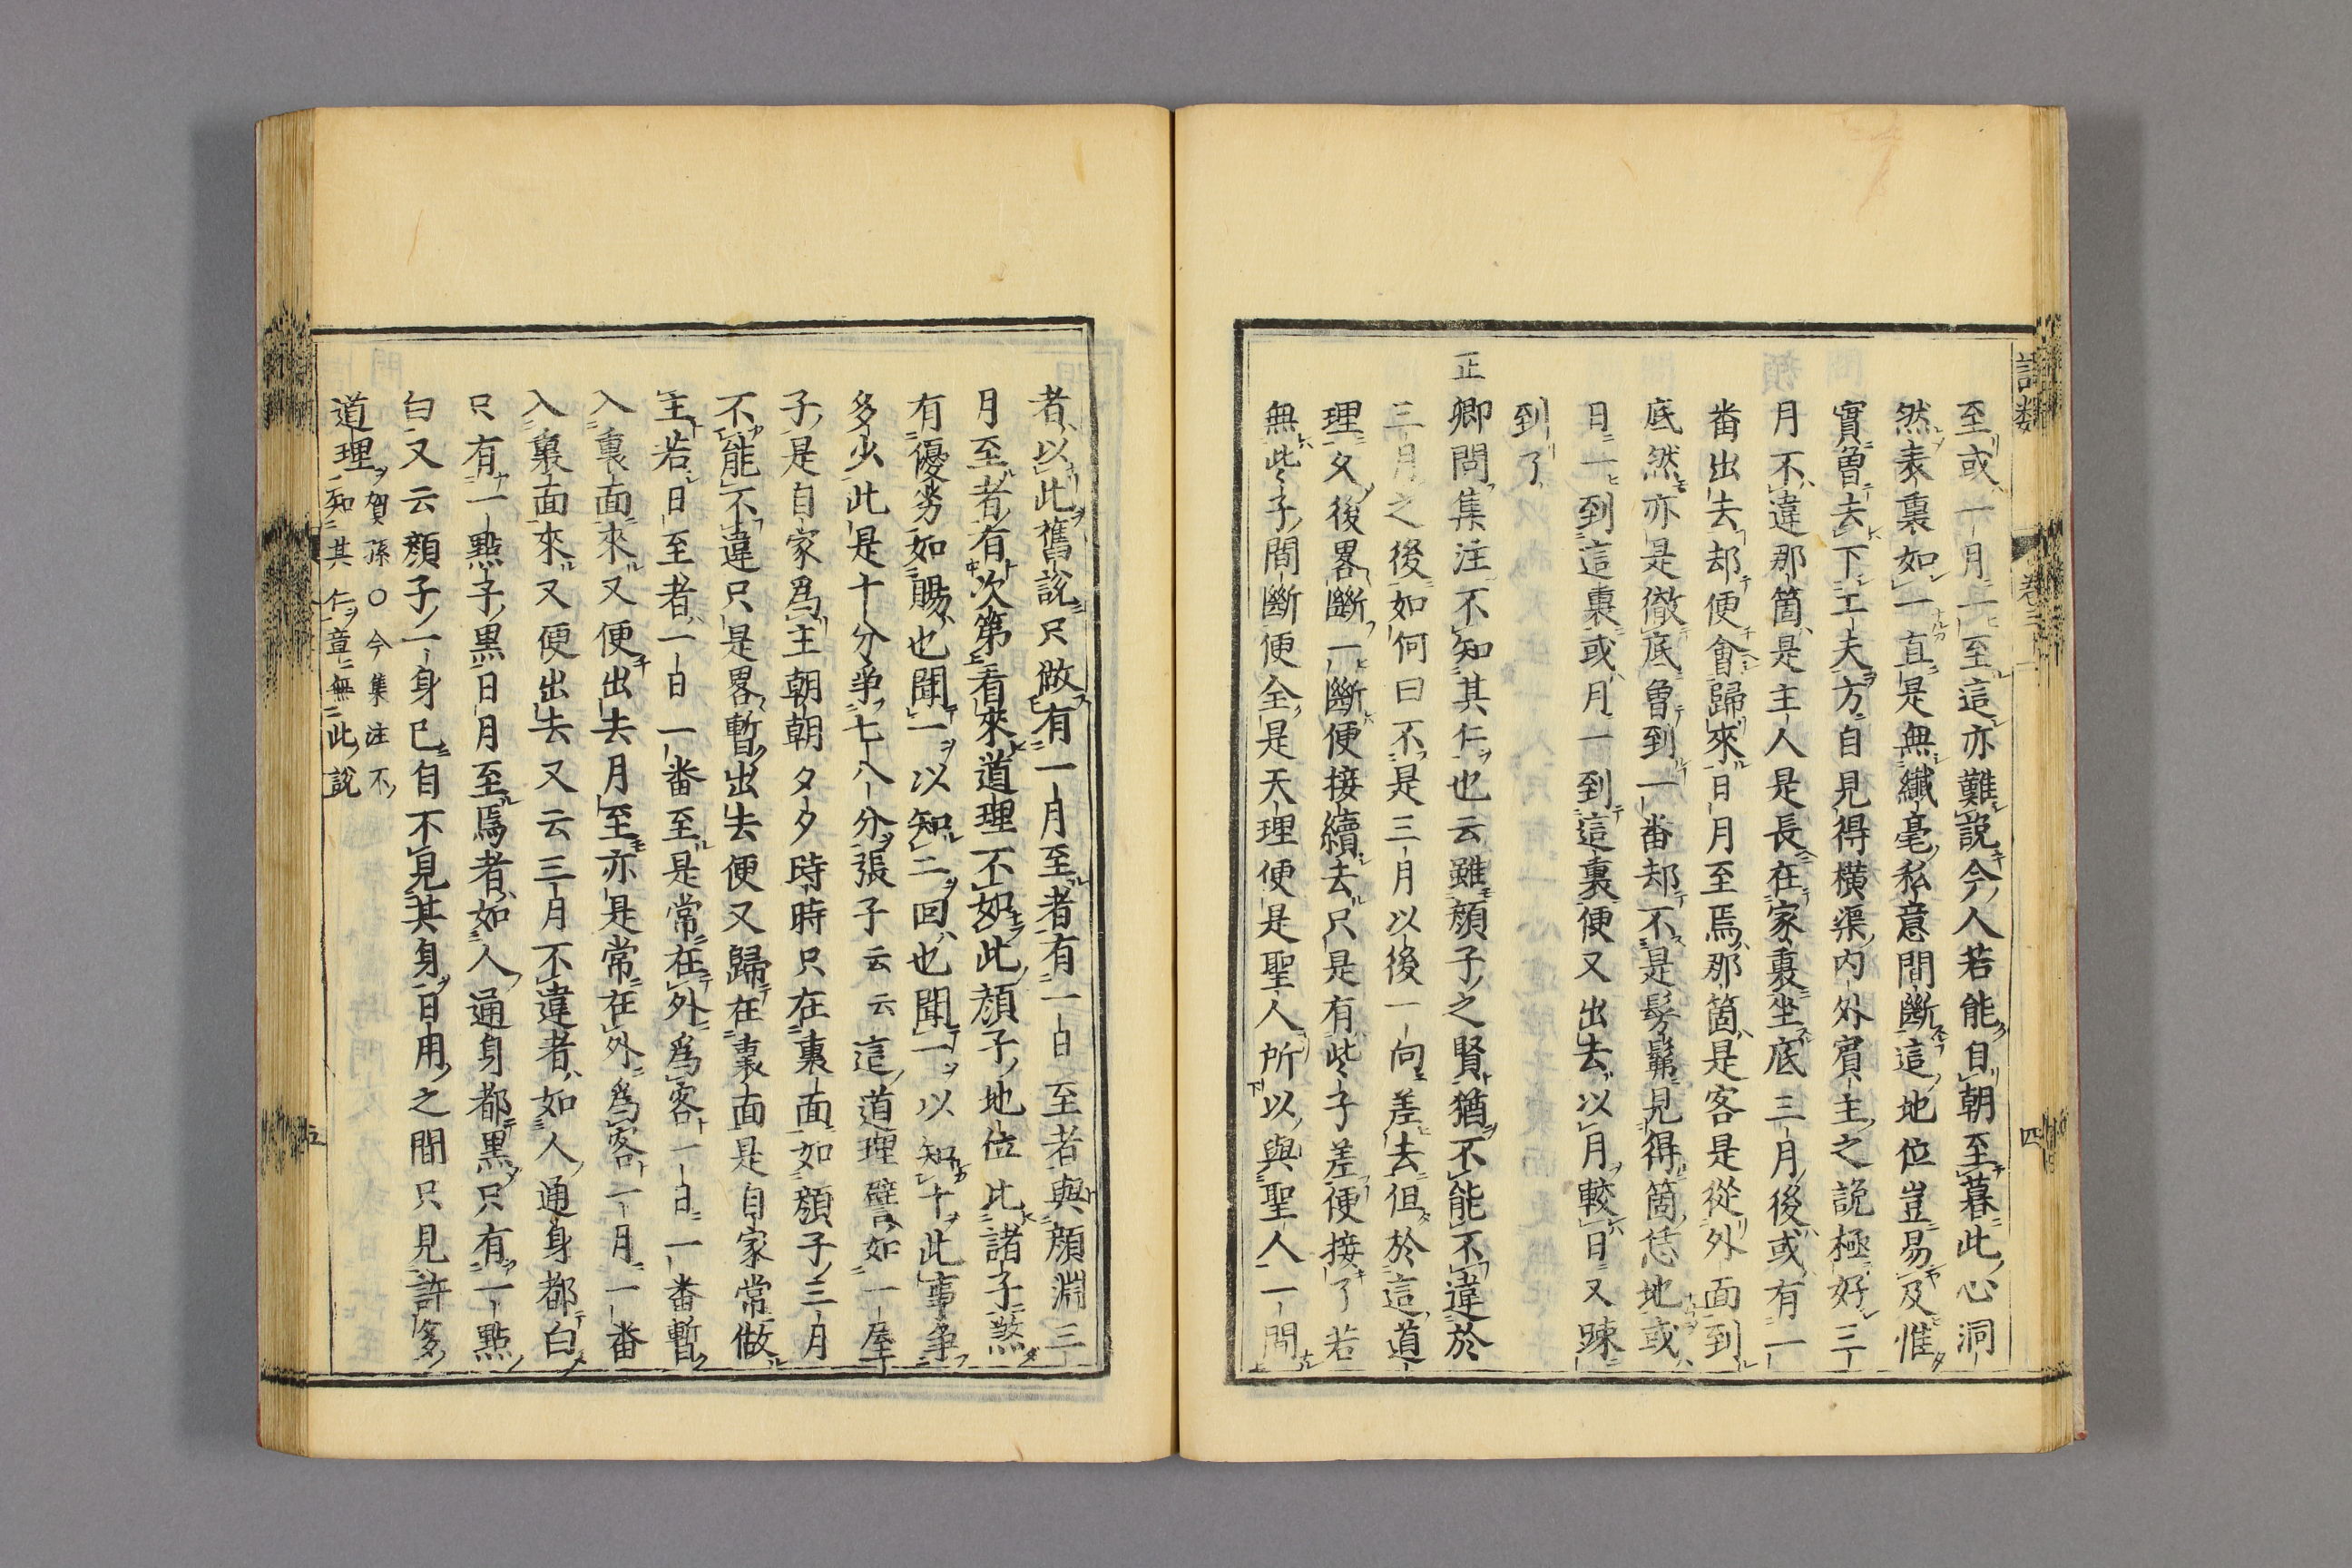 語類
卷三十一
四
至或一月一至這亦難說今人若能自朝至暮此心洞
然表裏如一直是無纖毫私意間斷這地位豈易及惟
實曾去下工夫方自見得橫渠內外賓主之說極好三
月不違那箇是主人是長在家裏坐底三月後或有一
番出去却便會歸來日月至焉那箇是客是從外面到
底然亦是徹底曾到一番却不是髣髴見得箇恁地或
日一到這裏或月一到這裏便又出去以月較日又疎
到了
正卿問集注不知其仁也云雖顏子之賢猶不能不違於
三月之後如何曰不是三月以後一向差去但於這道
理久後畧斷一斷便接續去只是有些子差便接了若
無些子間斷便全是天理便是聖人所以與聖人一間
者以此舊說只做有一月至者有一日至者與顏淵三
月至者有次第看來道理不如此顏子地位比諸子煞
有優劣如賜也聞一以知二回也聞一以知十此事爭
多少此是十分爭七八分張子云云這道理譬如一屋
子是自家爲主朝朝夕夕時時只在裏面如顏子三月
不能不違只是畧暫出去便又歸在裏面是自家常做
主若日至者一日一番至是常在外爲客一日一番暫
入裏面來又便出去月至亦是常在外爲客一月一番
入裏面來又便出去又云三月不違者如人通身都白
只有一點子黑日月至焉者如人通身都黑只有一點
白又云顏子一身已自不見其身日用之間只見許多
道理賀孫○今集注不
知其仁章無此說
五